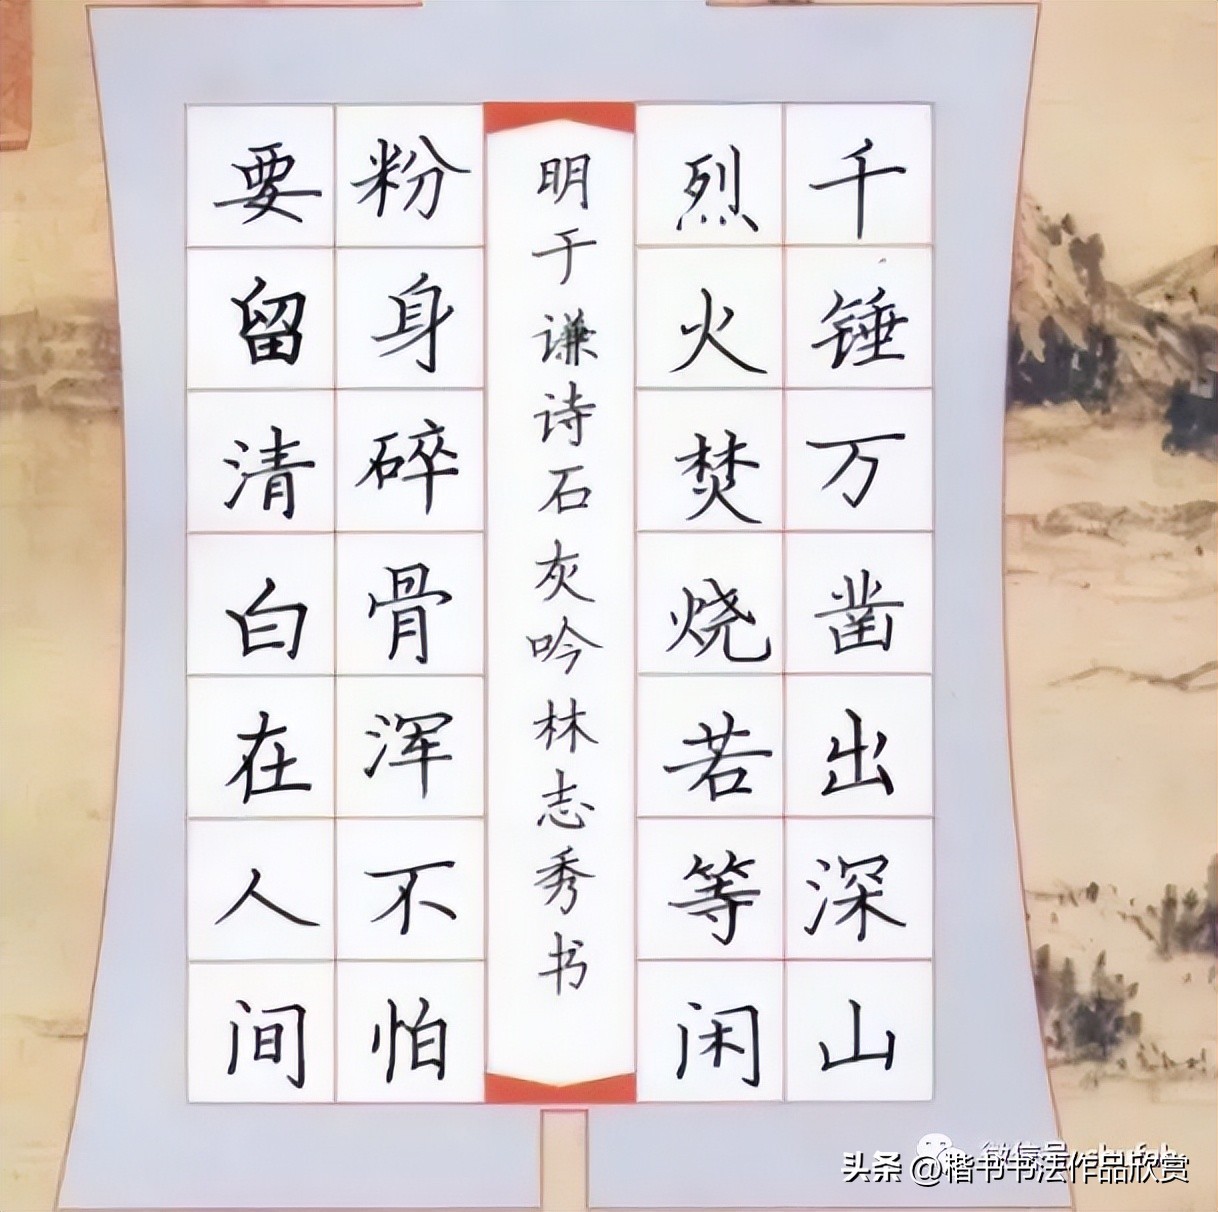 千锤万凿出深山
烈火焚烧若等闲
明于谦诗石灰吟林志秀书
粉身碎骨浑不怕
要留清白在人间
头条 @楷书书法作品欣赏